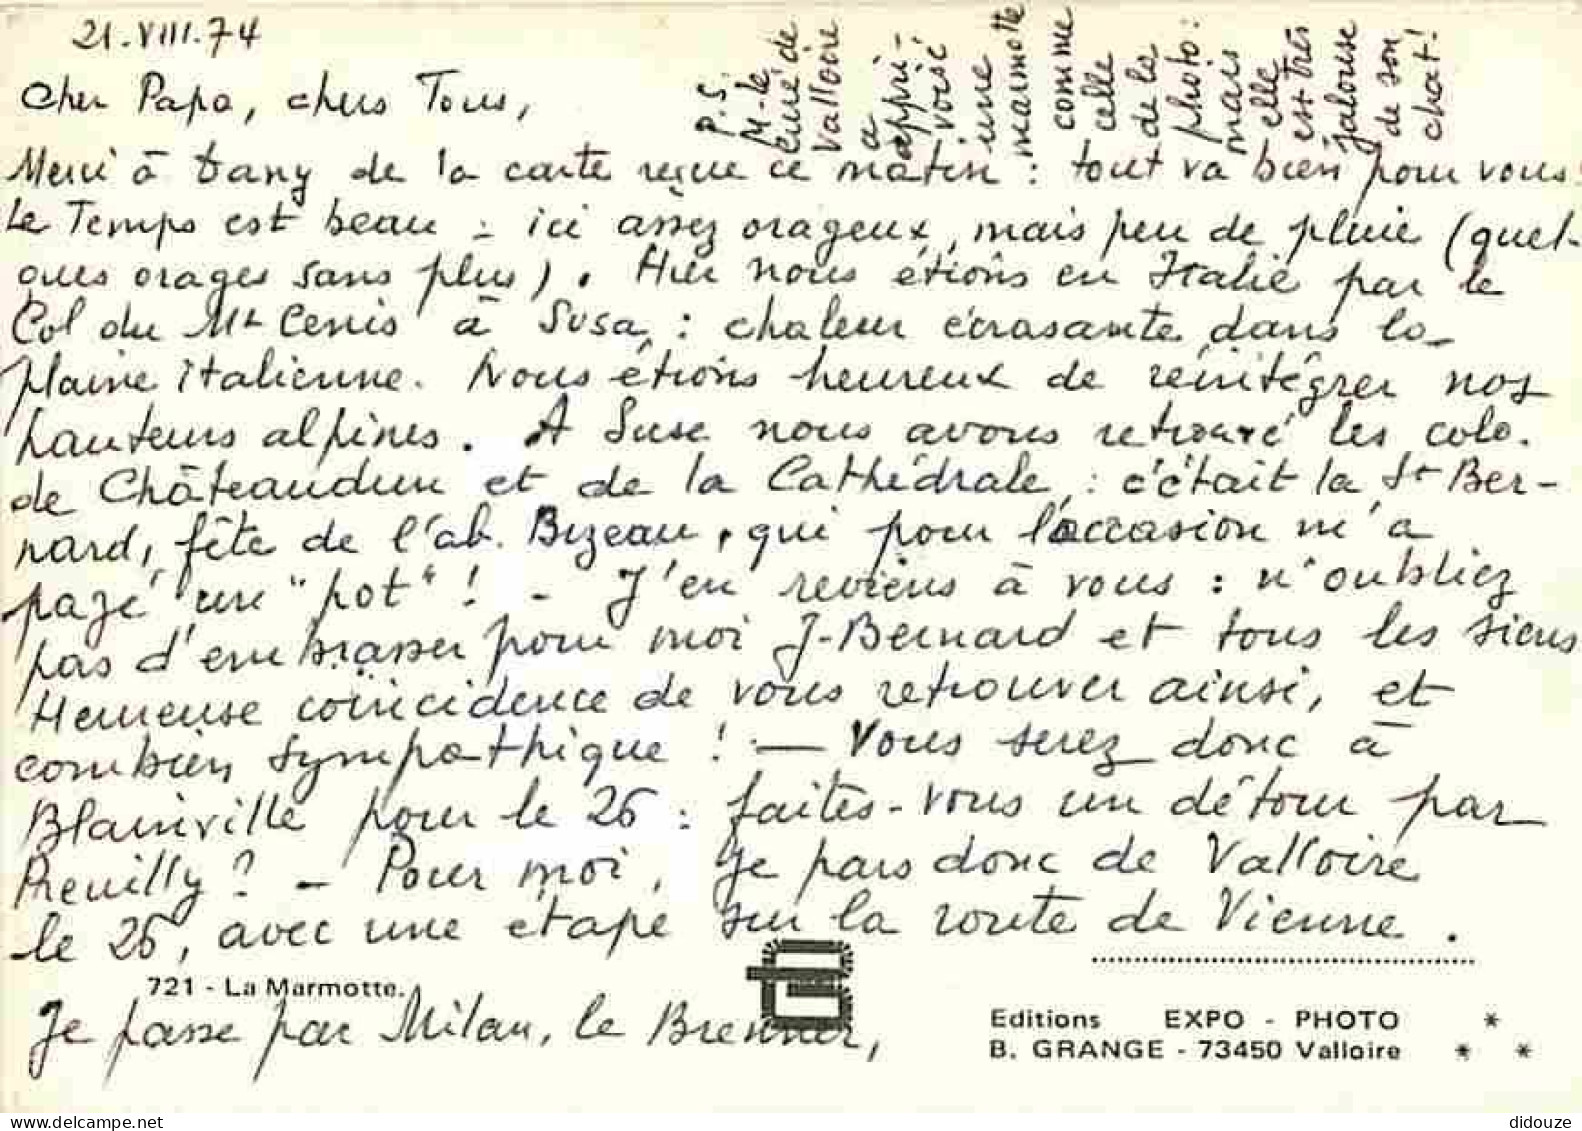 21.VIII.74
Cher Papa, chers Tous,
Merci à Dany de la carte reçue ce matin : tout va bien pour vous !
Le Temps est beau : ici assez orageux, mais peu de pluie (quel-
ques orages sans plus). Hier nous étions en Italie par le
Col du Mt Cenis à Susa, : chaleur écrasante dans la
plaine italienne. Nous étions heureux de réintégrer nos
hauteurs alpines. A Suse nous avons retrouvé les colo.
de Châteaudun et de la Cathédrale, : c'était la St Ber-
nard, fête de l'ab. Bizeau, qui pour l'occasion m'a
payé un "pot" ! - J'en reviens à vous : n'oubliez
pas d'embrasser pour moi J-Bernard et tous les siens
Heureuse coïncidence de vous retrouver ainsi, et
combien sympathique ! — Vous serez donc à
Blainville pour le 26 : faites-vous un détour par
Preuilly ? - Pour moi, je pars donc de Valloire
le 26, avec une étape sur la route de Vienne.
Je passe par Milan, le Brenner,
P.S.
M-le
curé de
Valloire
a
appri-
voisé
une
marmotte
comme
celle
de la
photo :
mais
elle
est très
jalouse
de son
chat !
721 - La Marmotte.
Editions EXPO - PHOTO *
B. GRANGE - 73450 Valloire * *
didouze